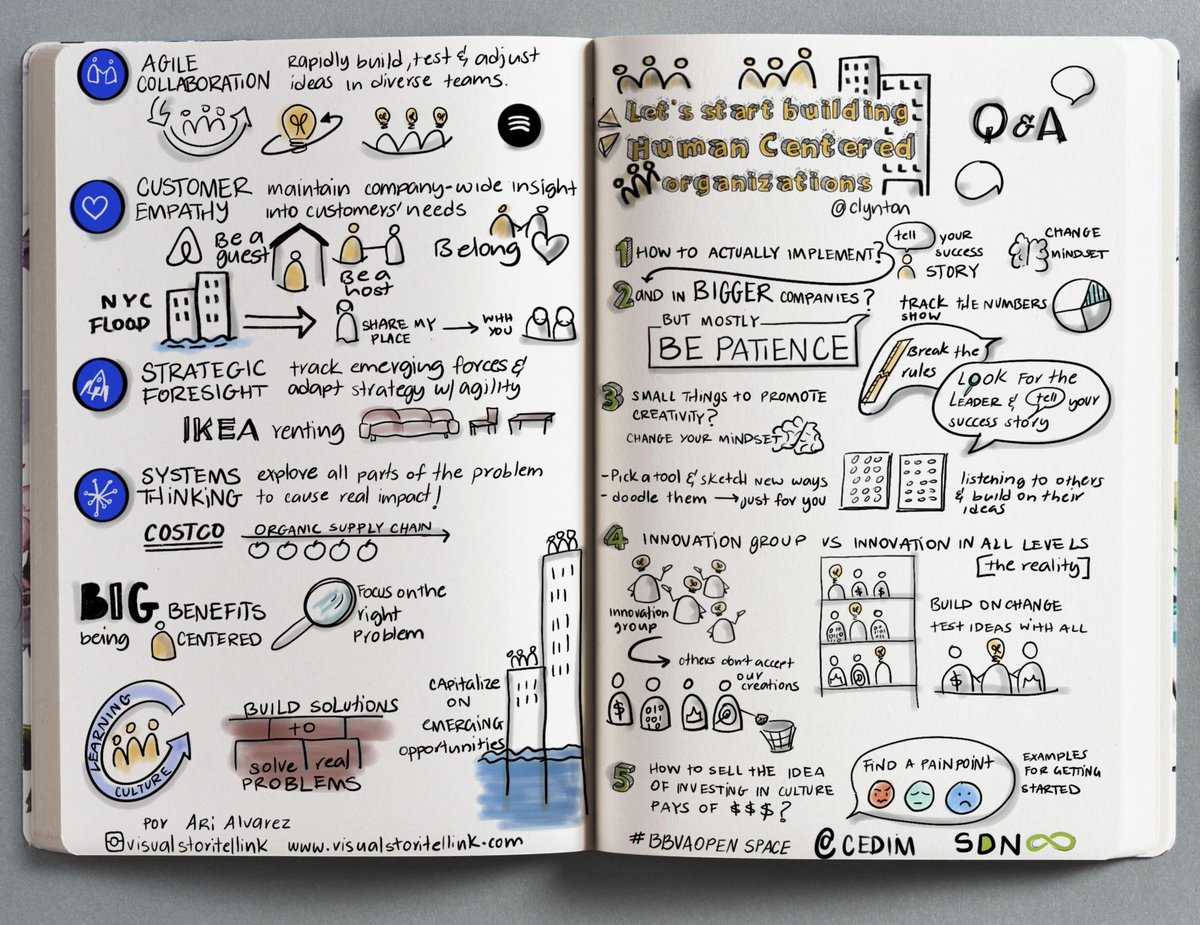 AGILE
COLLABORATION
Rapidly build, test & adjust
ideas in diverse teams.
CUSTOMER
EMPATHY
maintain company-wide insight
into customers' needs
Be a
guest
Be a
host
Belong
NYC
FLOOD
SHARE MY
PLACE
WHH
YOU
STRATEGIC
FORESIGHT
track emerging forces &
adapt strategy w/agility
IKEA renting
SYSTEMS
THINKING
explore all parts of the problem
to cause real impact!
COSTCO
ORGANIC SUPPLY CHAIN
BIG BENEFITS
being CENTERED
Focus on the
right
Problem
LEARNING
CULTURE
BUILD SOLUTIONS
to
solve real
PROBLEMS
CAPITALIZE
ON
EMERGING
opportunities
por Ari Alvarez
visualstoritellink www.visualstoritellink.com
Let's start building
Human Centered
organizations
@clyntan
Q&A
1 HOW TO ACTUALLY IMPLEMENT?
tell YOUR
success
STORY
CHANGE
MINDSET
2 AND IN BIGGER COMPANIES?
BUT MOSTLY
BE PATIENCE
TRACK THE NUMBERS
SHOW
Break the
rules
LOOK FOR the
LEADER & tell your
success story
3 SMALL THINGS TO PROMOTE
CREATIVITY?
CHANGE YOUR MINDSET
- Pick a tool & sketch new ways
- doodle them → just for you
listening to others
& build on their
ideas
4 INNOVATION GROUP VS INNOVATION IN ALL LEVELS
[the reality]
innovation
group
others don't accept
our
creations
BUILD ON CHANGE
TEST IDEAS WITH ALL
5 HOW TO SELL THE IDEA
OF INVESTING IN CULTURE
PAYS OF $$$?
FIND A PAINPOINT
EXAMPLES
FOR GETTING
STARTED
#BBVAOPEN SPACE
CEDIM
SDN